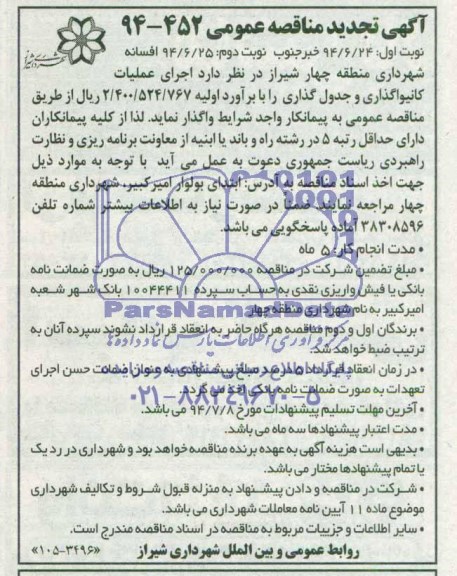 آگهی تجدید مناقصه عمومی ۴۵۲-۹۴
نوبت اول: ۹۴/۶/۲۴ خبرجنوب نوبت دوم: ۹۴/۶/۲۵ افسانه
شهرداری منطقه چهار شیراز در نظر دارد اجرای عملیات
کانیواگذاری و جدول گذاری را با برآورد اولیه ۲/۴۰۰/۵۲۴/۷۶۷ ریال از طریق
مناقصه عمومی به پیمانکار واجد شرایط واگذار نماید. لذا از کلیه پیمانکاران
دارای حداقل رتبه ۵ در رشته راه و باند یا ابنیه از معاونت برنامه ریزی و نظارت
راهبردی ریاست جمهوری دعوت به عمل می آید با توجه به موارد ذیل
جهت اخذ اسناد مناقصه به آدرس: ابتدای بولوار امیرکبیر، شهرداری منطقه
چهار مراجعه نمایند. ضمناً در صورت نیاز به اطلاعات بیشتر شماره تلفن
۳۸۳۰۸۵۹۶ آماده پاسخگویی می باشد.
• مدت انجام کار: ۵ ماه
• مبلغ تضمین شرکت در مناقصه ۱۲۵/۰۰۰/۰۰۰ ریال به صورت ضمانت نامه
بانکی یا فیش واریزی نقدی به حساب سپرده ۱۰۰۴۴۴۱۱ بانک شهر شعبه
امیرکبیر به نام شهرداری منطقه چهار
ParsNamadData
• برندگان اول و دوم مناقصه هرگاه حاضر به انعقاد قرارداد نشوند سپرده آنان به
ترتیب ضبط خواهد شد.
• در زمان انعقاد قرارداد درصد مبلغ پیشنهادی به عنوان ضمانت حسن اجرای
تعهدات به صورت ضمانت نامه بانکی اخذ می گردد.
۰۲۱-۸۸۳۴۹۶۷۰-۵
• آخرین مهلت تسلیم پیشنهادات مورخ ۹۴/۷/۸ می باشد.
• مدت اعتبار پیشنهادها سه ماه می باشد.
• بدیهی است هزینه آگهی به عهده برنده مناقصه خواهد بود و شهرداری در رد یک
یا تمام پیشنهادها مختار می باشد.
• شرکت در مناقصه و دادن پیشنهاد به منزله قبول شروط و تکالیف شهرداری
موضوع ماده ۱۱ آیین نامه معاملات شهرداری می باشد.
• سایر اطلاعات و جزییات مربوط به مناقصه در اسناد مناقصه مندرج است.
روابط عمومی و بین الملل شهرداری شیراز «۱۰۵-۳۴۹۶»